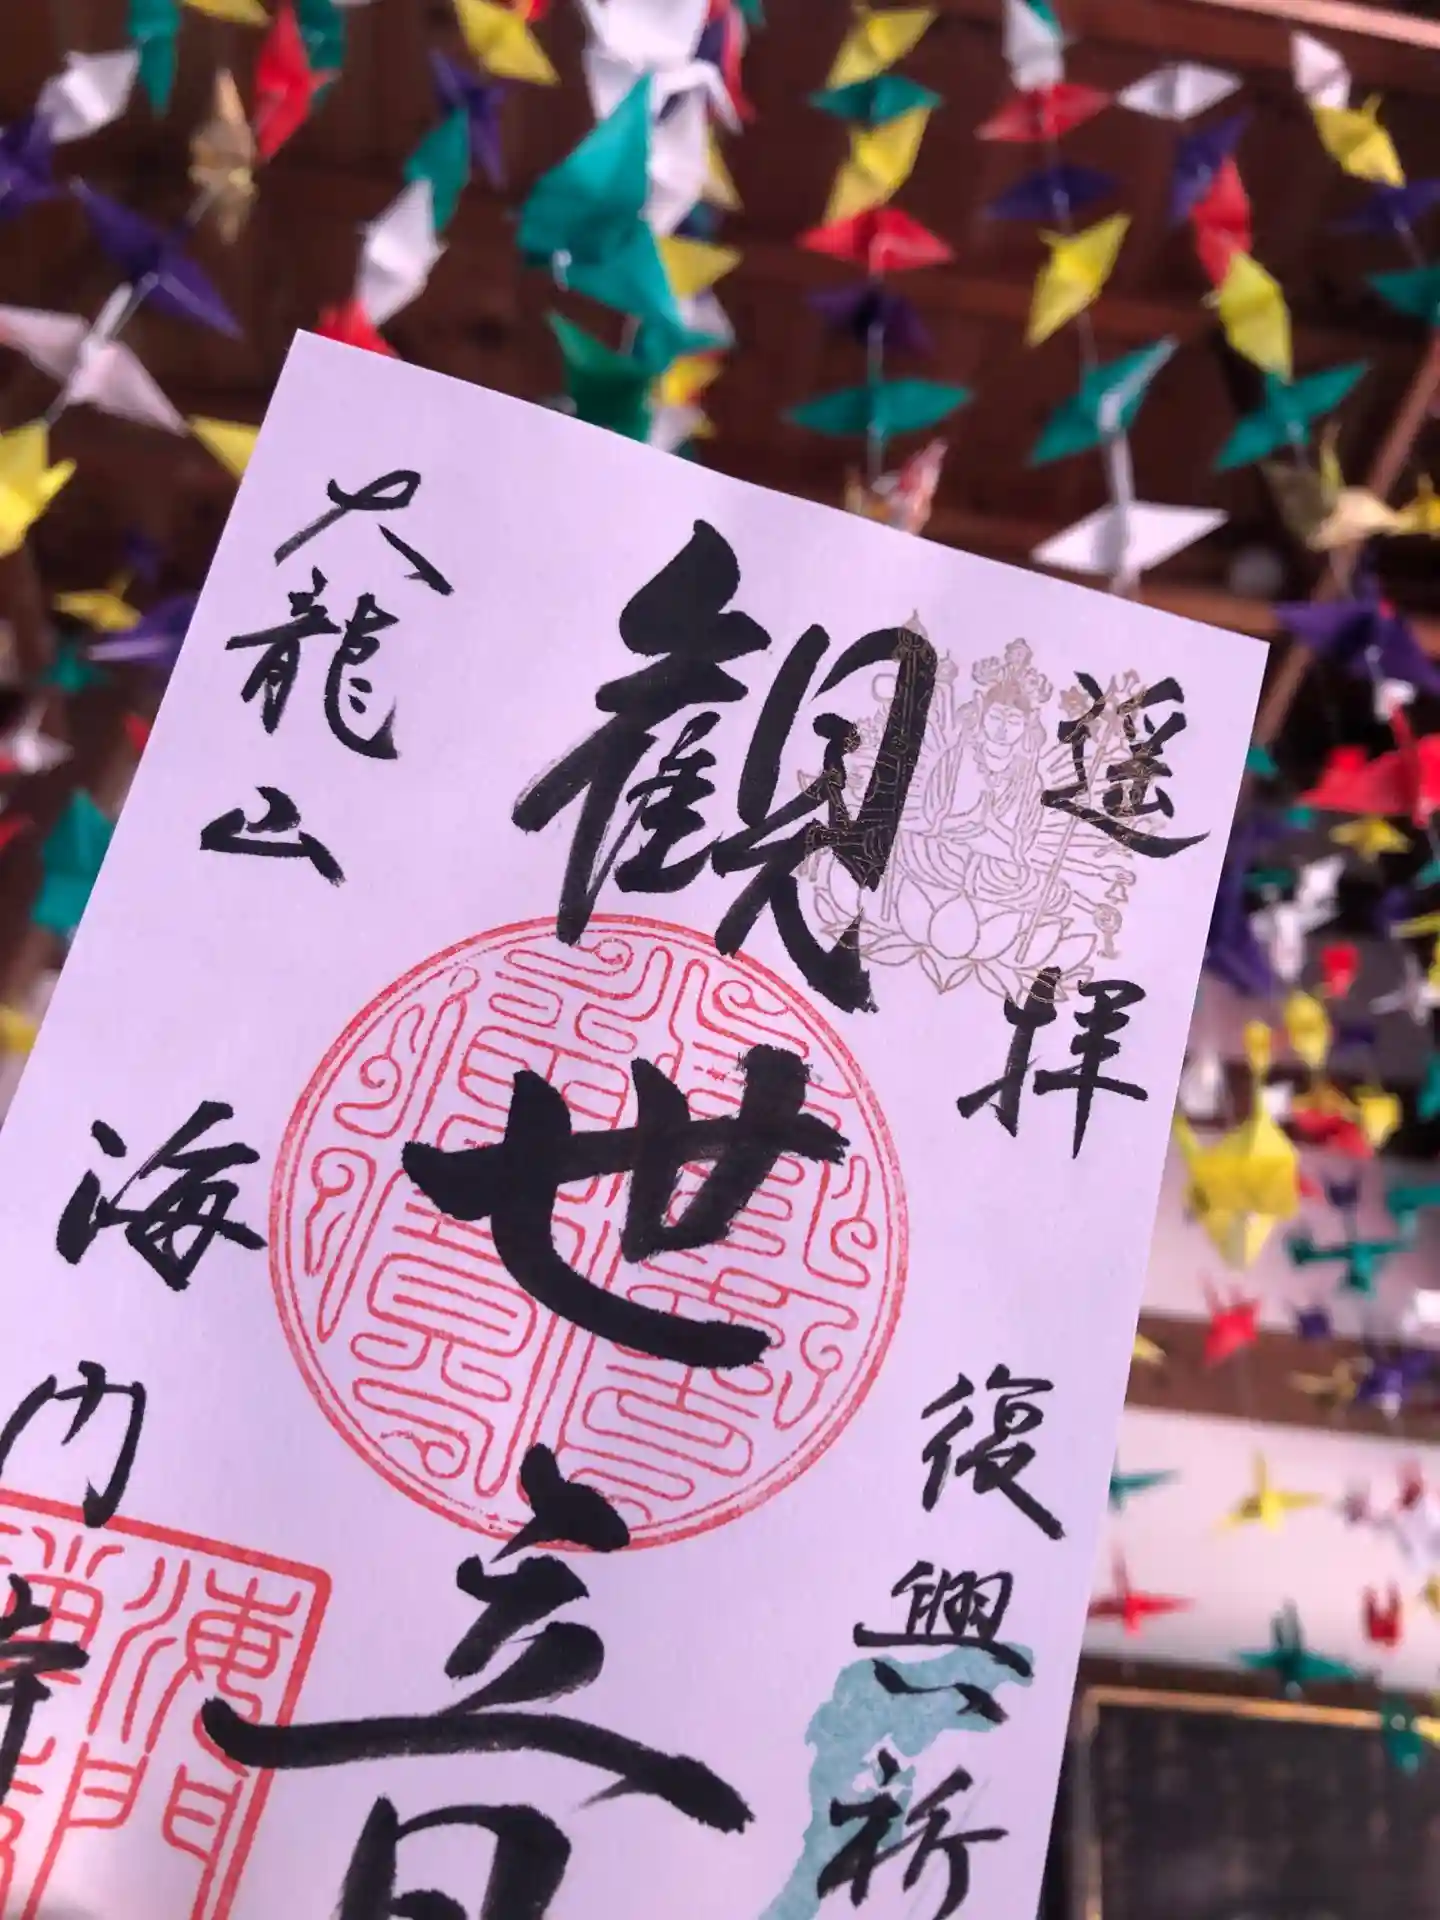 遥拝 復興祈
観世音
大龍山 海門寺